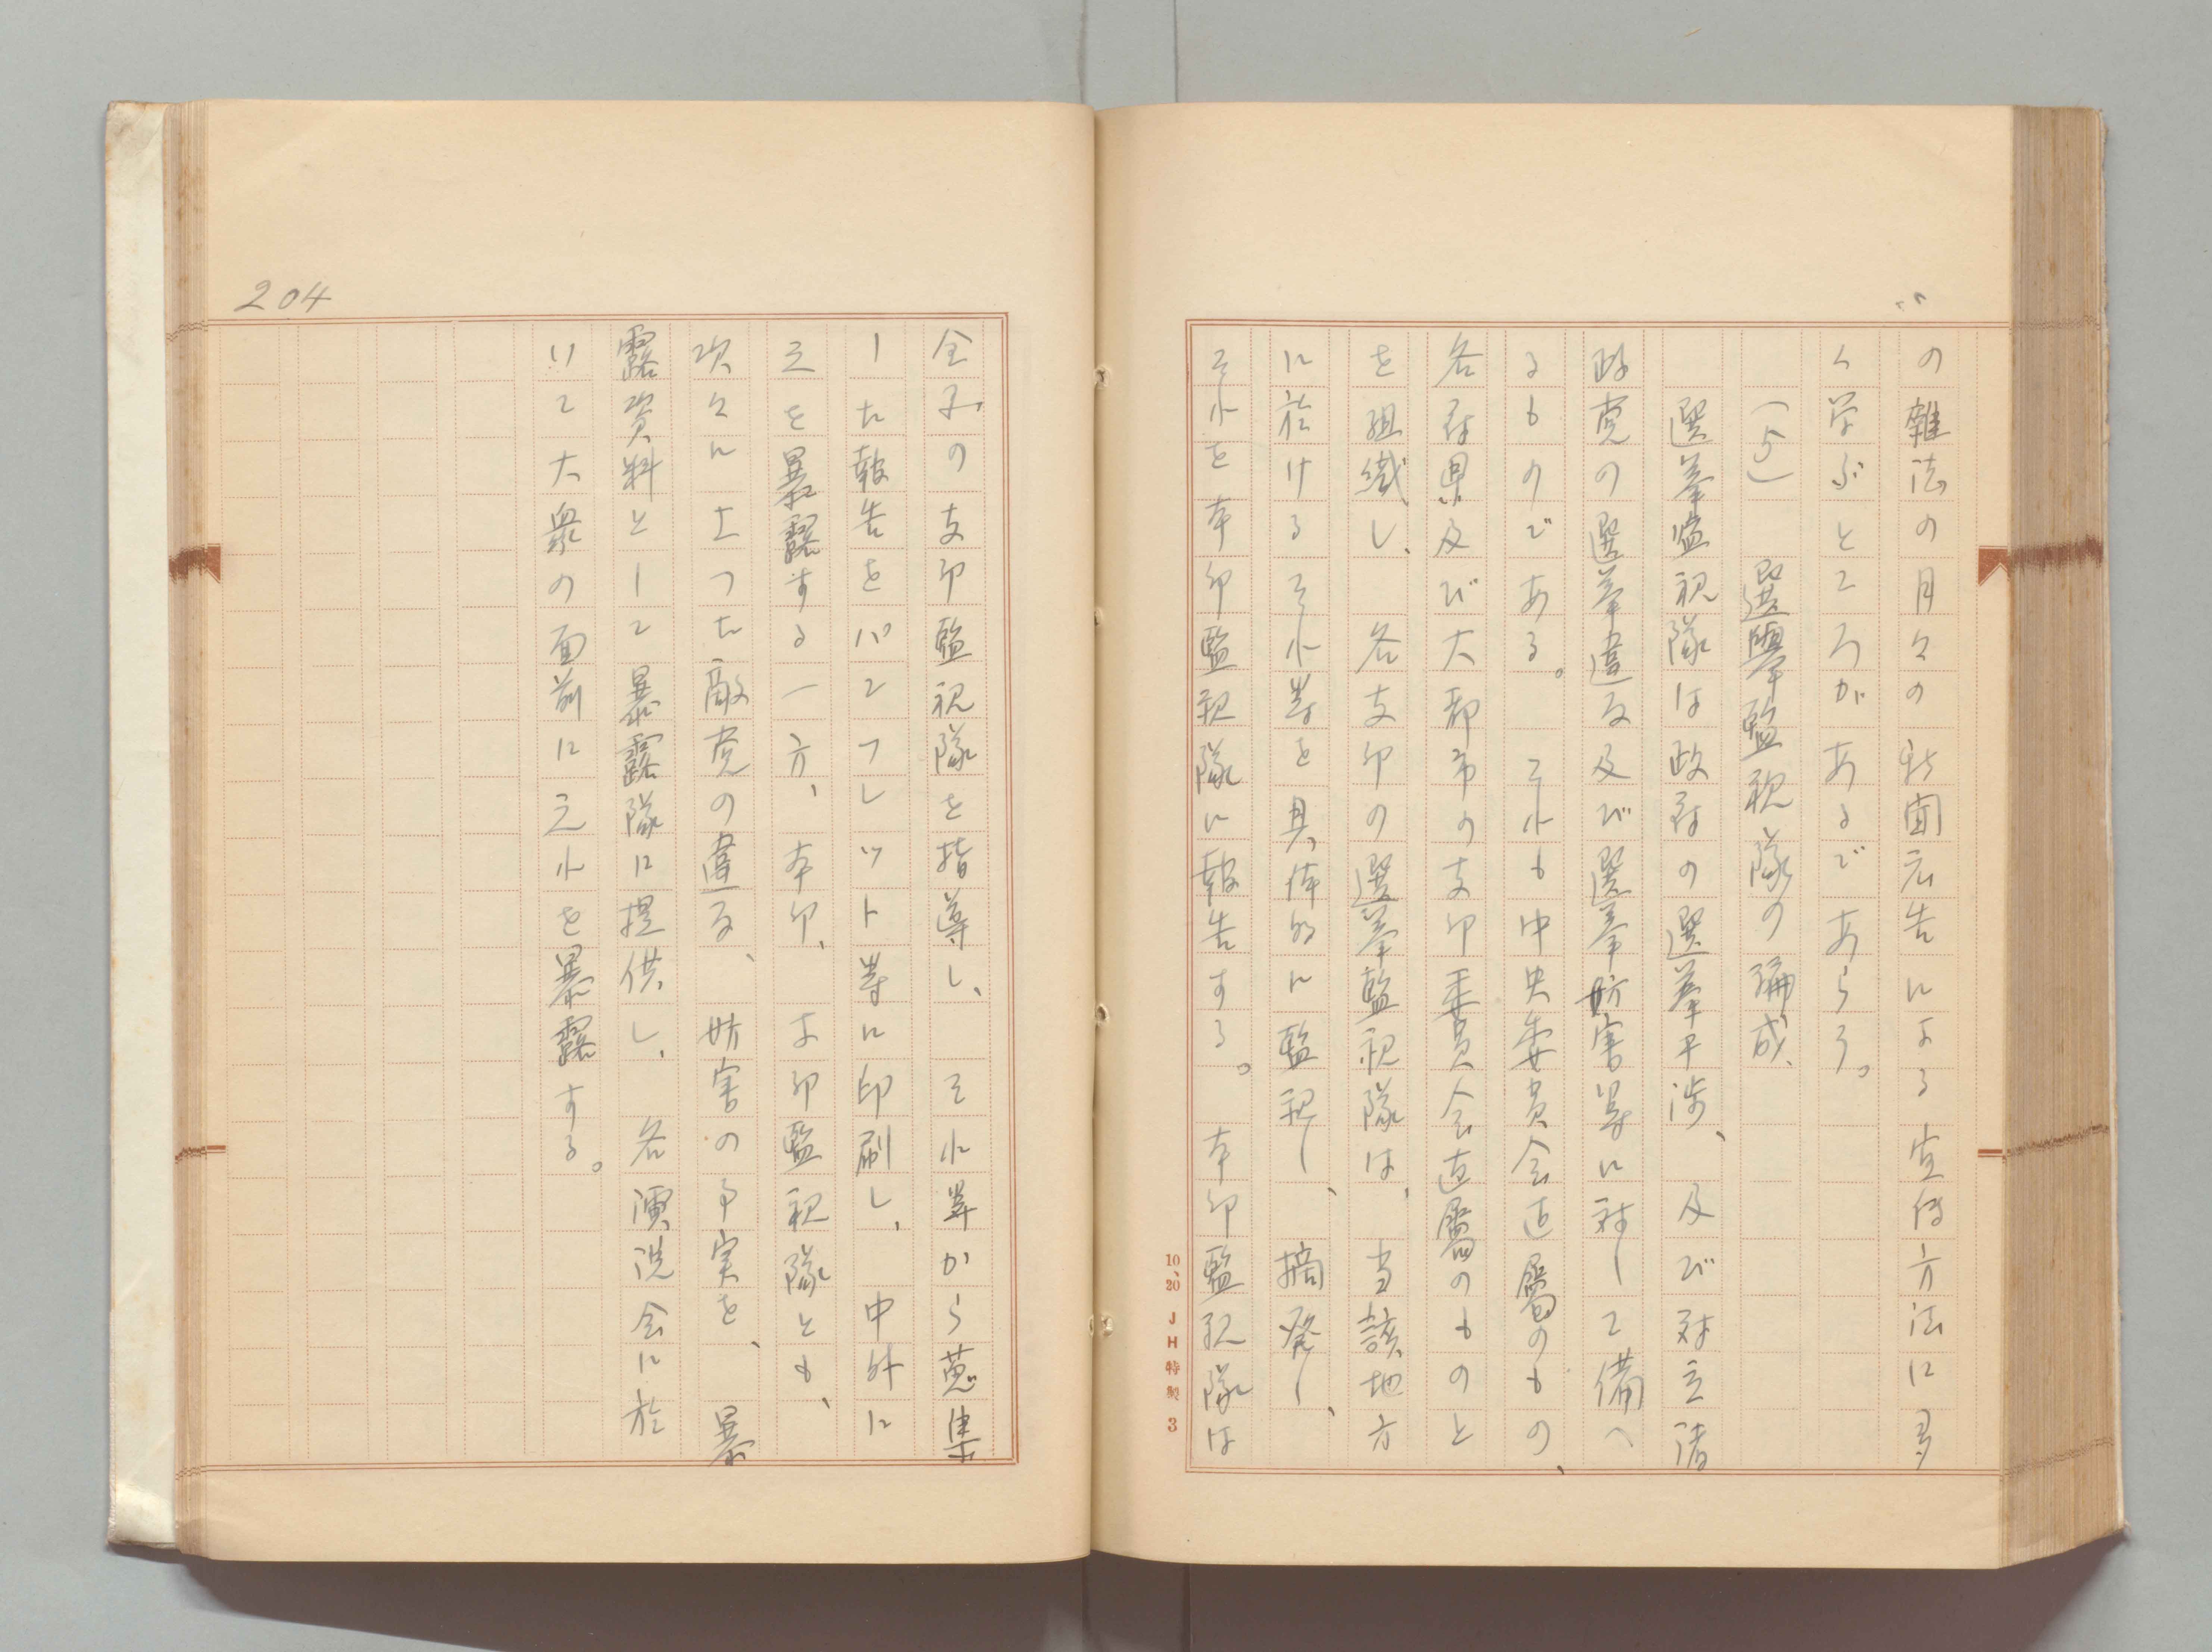 の雑法の月々の新聞広告による宣伝方法に多
く学ぶところがあるであらう。
(5) 選擧監視隊の編成、
選挙監視隊は政府の選挙干渉、及び対立諸
政党の選挙違反及び選挙妨害等に対して備へ
るものである。これも中央委員会直属のもの、
各府県及び大都市の支部委員会直属のものと
を組織し、各支部の選挙監視隊は、当該地方
に於けるそれ等を具体的に監視し、摘発し、
それを本部監視隊に報告する。本部監視隊は
204
全国の支部監視隊を指導し、それ等から蒐集
した報告をパンフレット等に印刷し、中外に
之を暴露する一方、本部、支部監視隊とも、
次々に上つた敵党の違反、妨害の事実を、暴
露資料として暴露隊に提供し、各演説会に於
いて大衆の面前に之れを暴露する。
10、20 JH特製 3